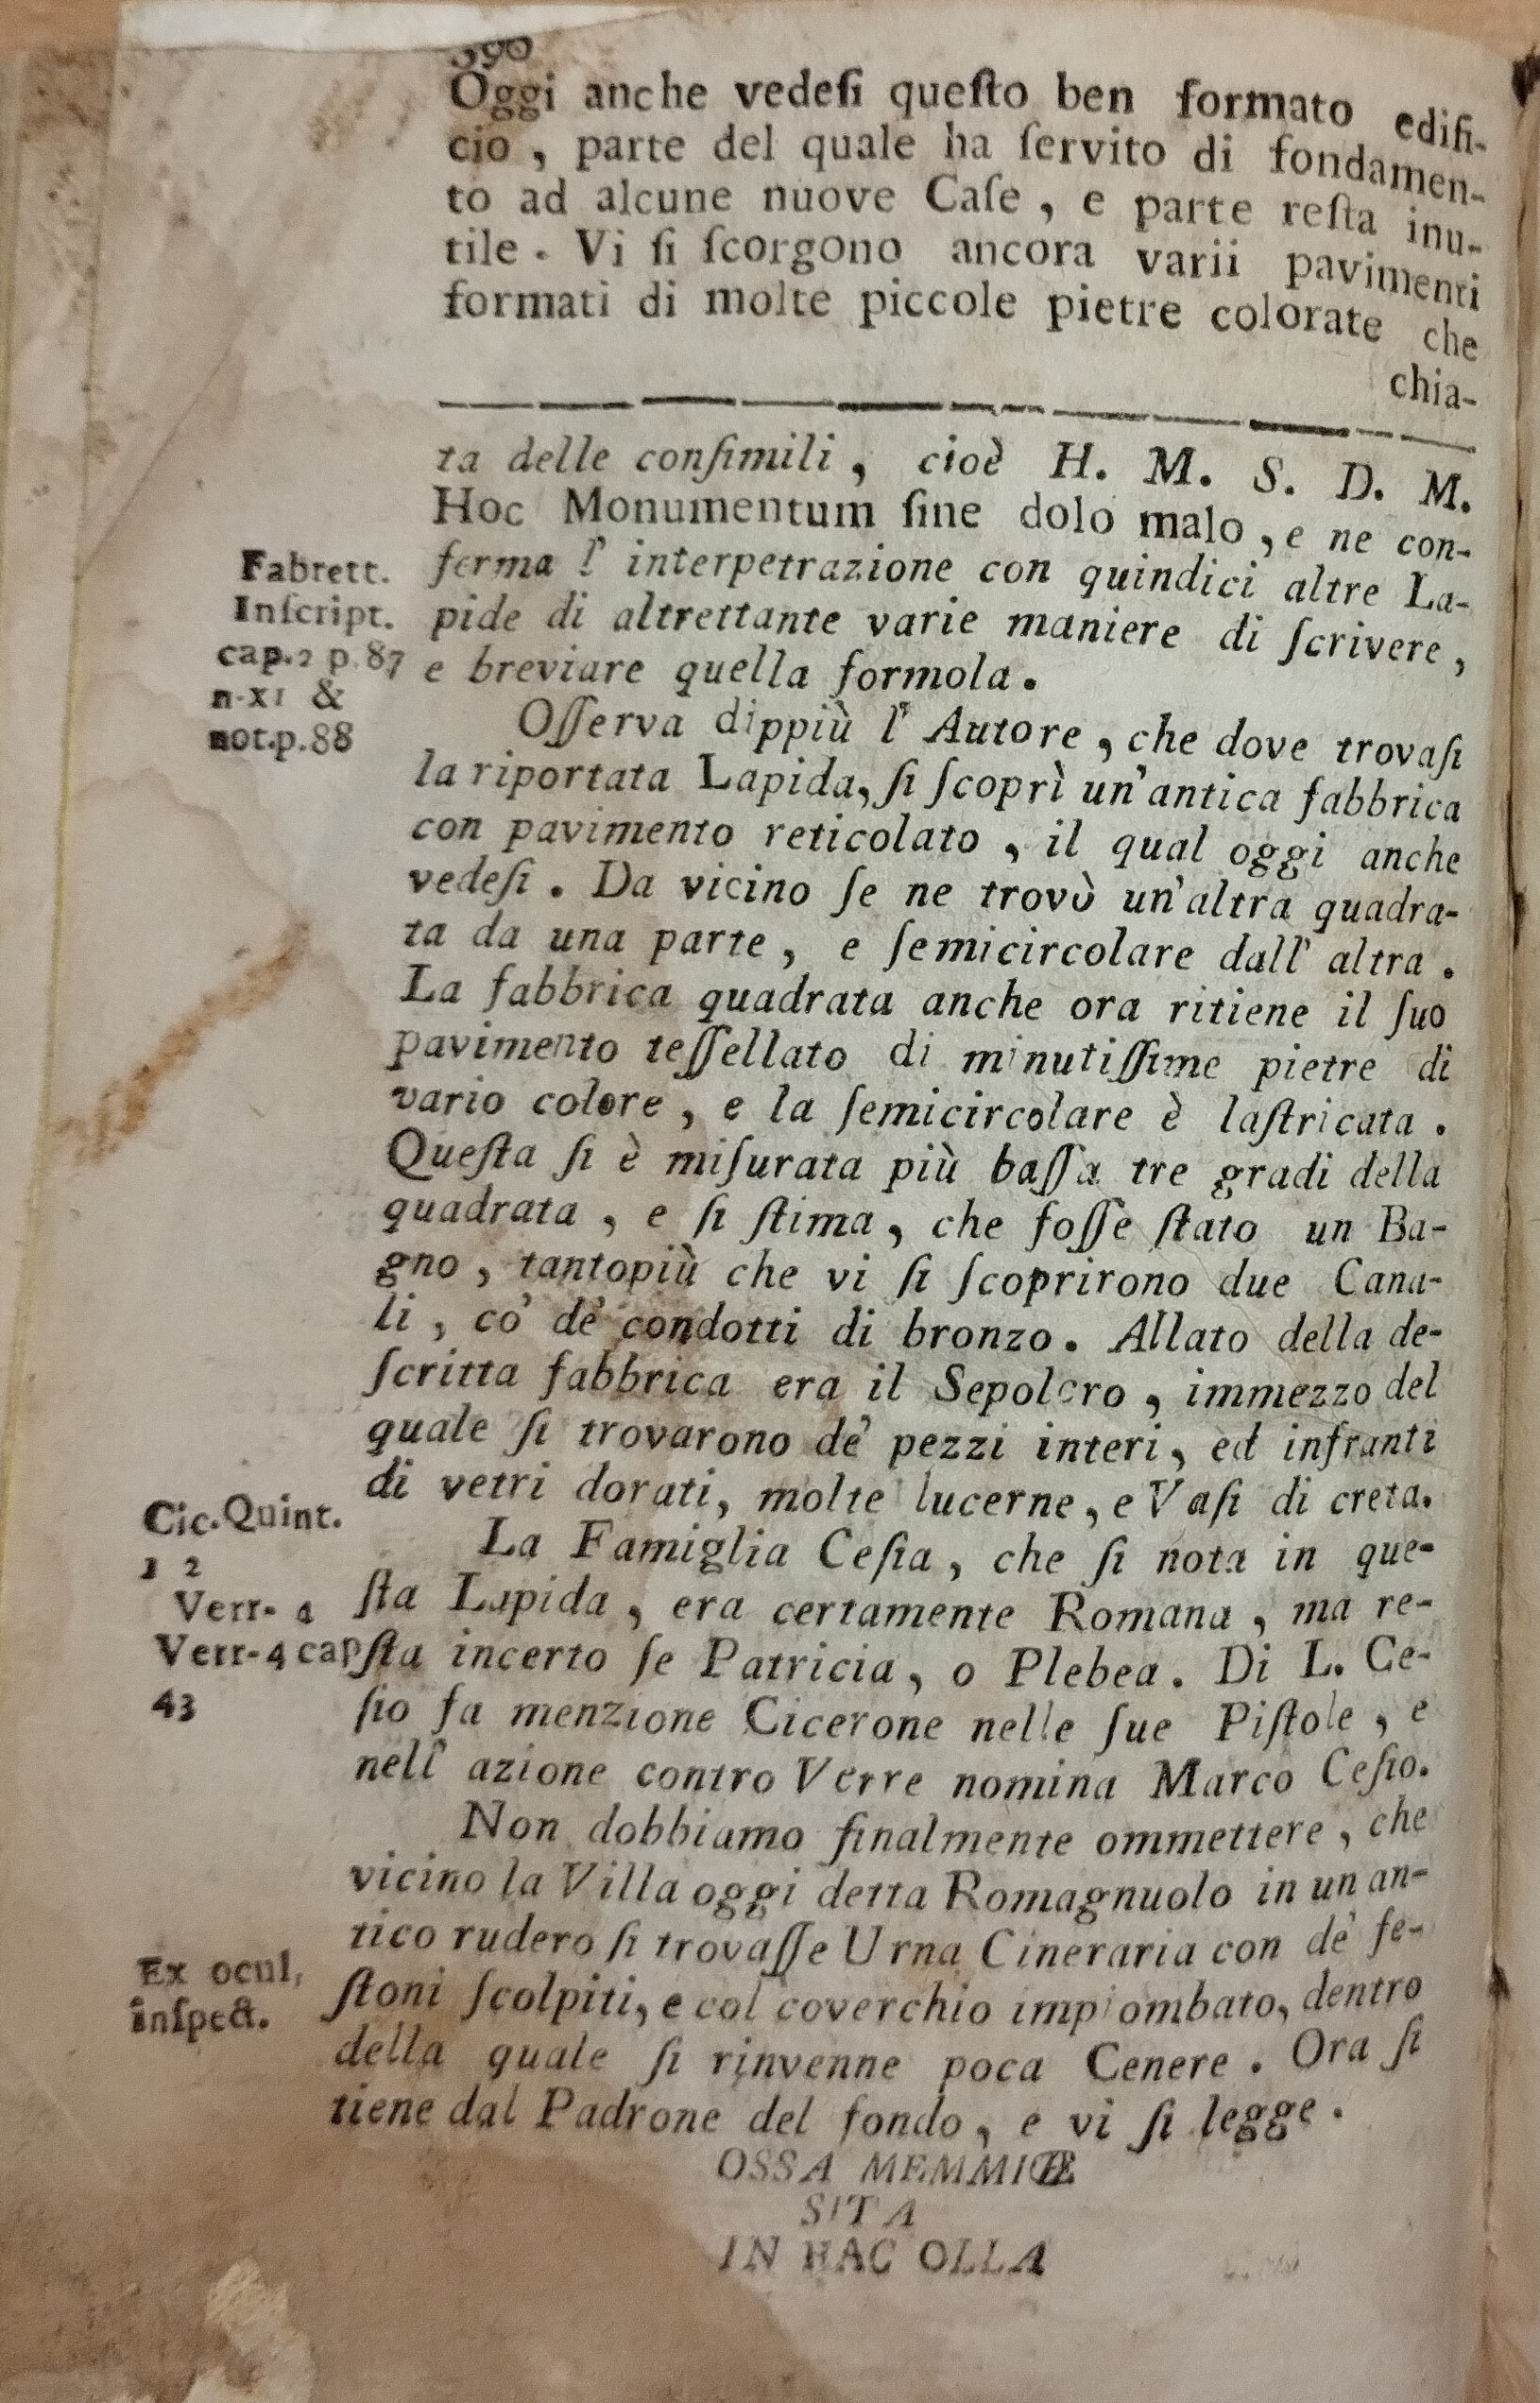 390
Oggi anche vedeſi queſto ben formato edifi-
cio , parte del quale ha ſervito di fondamen-
to ad alcune nuove Caſe , e parte reſta inu-
tile . Vi ſi ſcorgono ancora varii pavimenti
formati di molte piccole pietre colorate che
chia-
ta delle conſimili , cioè H. M. S. D. M.
Hoc Monumentum ſine dolo malo , e ne con-
ferma l' interpetrazione con quindici altre La-
pide di altrettante varie maniere di ſcrivere ,
e breviare quella formola .
Fabrett.
Inſcript.
cap.2 p.87
n.XI &
not.p.88
Oſſerva dippiù l' Autore , che dove trovaſi
la riportata Lapida, ſi ſcoprì un'antica fabbrica
con pavimento reticolato , il qual oggi anche
vedeſi . Da vicino ſe ne trovò un'altra quadra-
ta da una parte , e ſemicircolare dall' altra .
La fabbrica quadrata anche ora ritiene il ſuo
pavimento teſſellato di minutiſſime pietre di
vario colore , e la ſemicircolare è laſtricata .
Queſta ſi è miſurata più baſſa tre gradi della
quadrata , e ſi ſtima , che foſſe ſtato un Ba-
gno , tantopiù che vi ſi ſcoprirono due Cana-
li , co' de' condotti di bronzo . Allato della de-
ſcritta fabbrica era il Sepolcro , immezzo del
quale ſi trovarono de' pezzi interi , ed infranti
di vetri dorati, molte lucerne , e Vaſi di creta.
La Famiglia Ceſia , che ſi nota in que-
ſta Lapida , era certamente Romana , ma re-
ſta incerto ſe Patricia , o Plebea . Di L. Ce-
ſio fa menzione Cicerone nelle ſue Piſtole , e
nell' azione contro Verre nomina Marco Ceſio.
Cic.Quint.
1 2
Verr- 4
Verr-4 cap
43
Non dobbiamo finalmente ommettere , che
vicino la Villa oggi detta Romagnuolo in un an-
tico rudero ſi trovaſſe Urna Cineraria con de' fe-
ſtoni ſcolpiti, e col coverchio impiombato, dentro
della quale ſi rinvenne poca Cenere . Ora ſi
tiene dal Padrone del fondo , e vi ſi legge .
Ex ocul.
inſpect.
OSSA MEMMIÆ
SITA
IN HAC OLLA